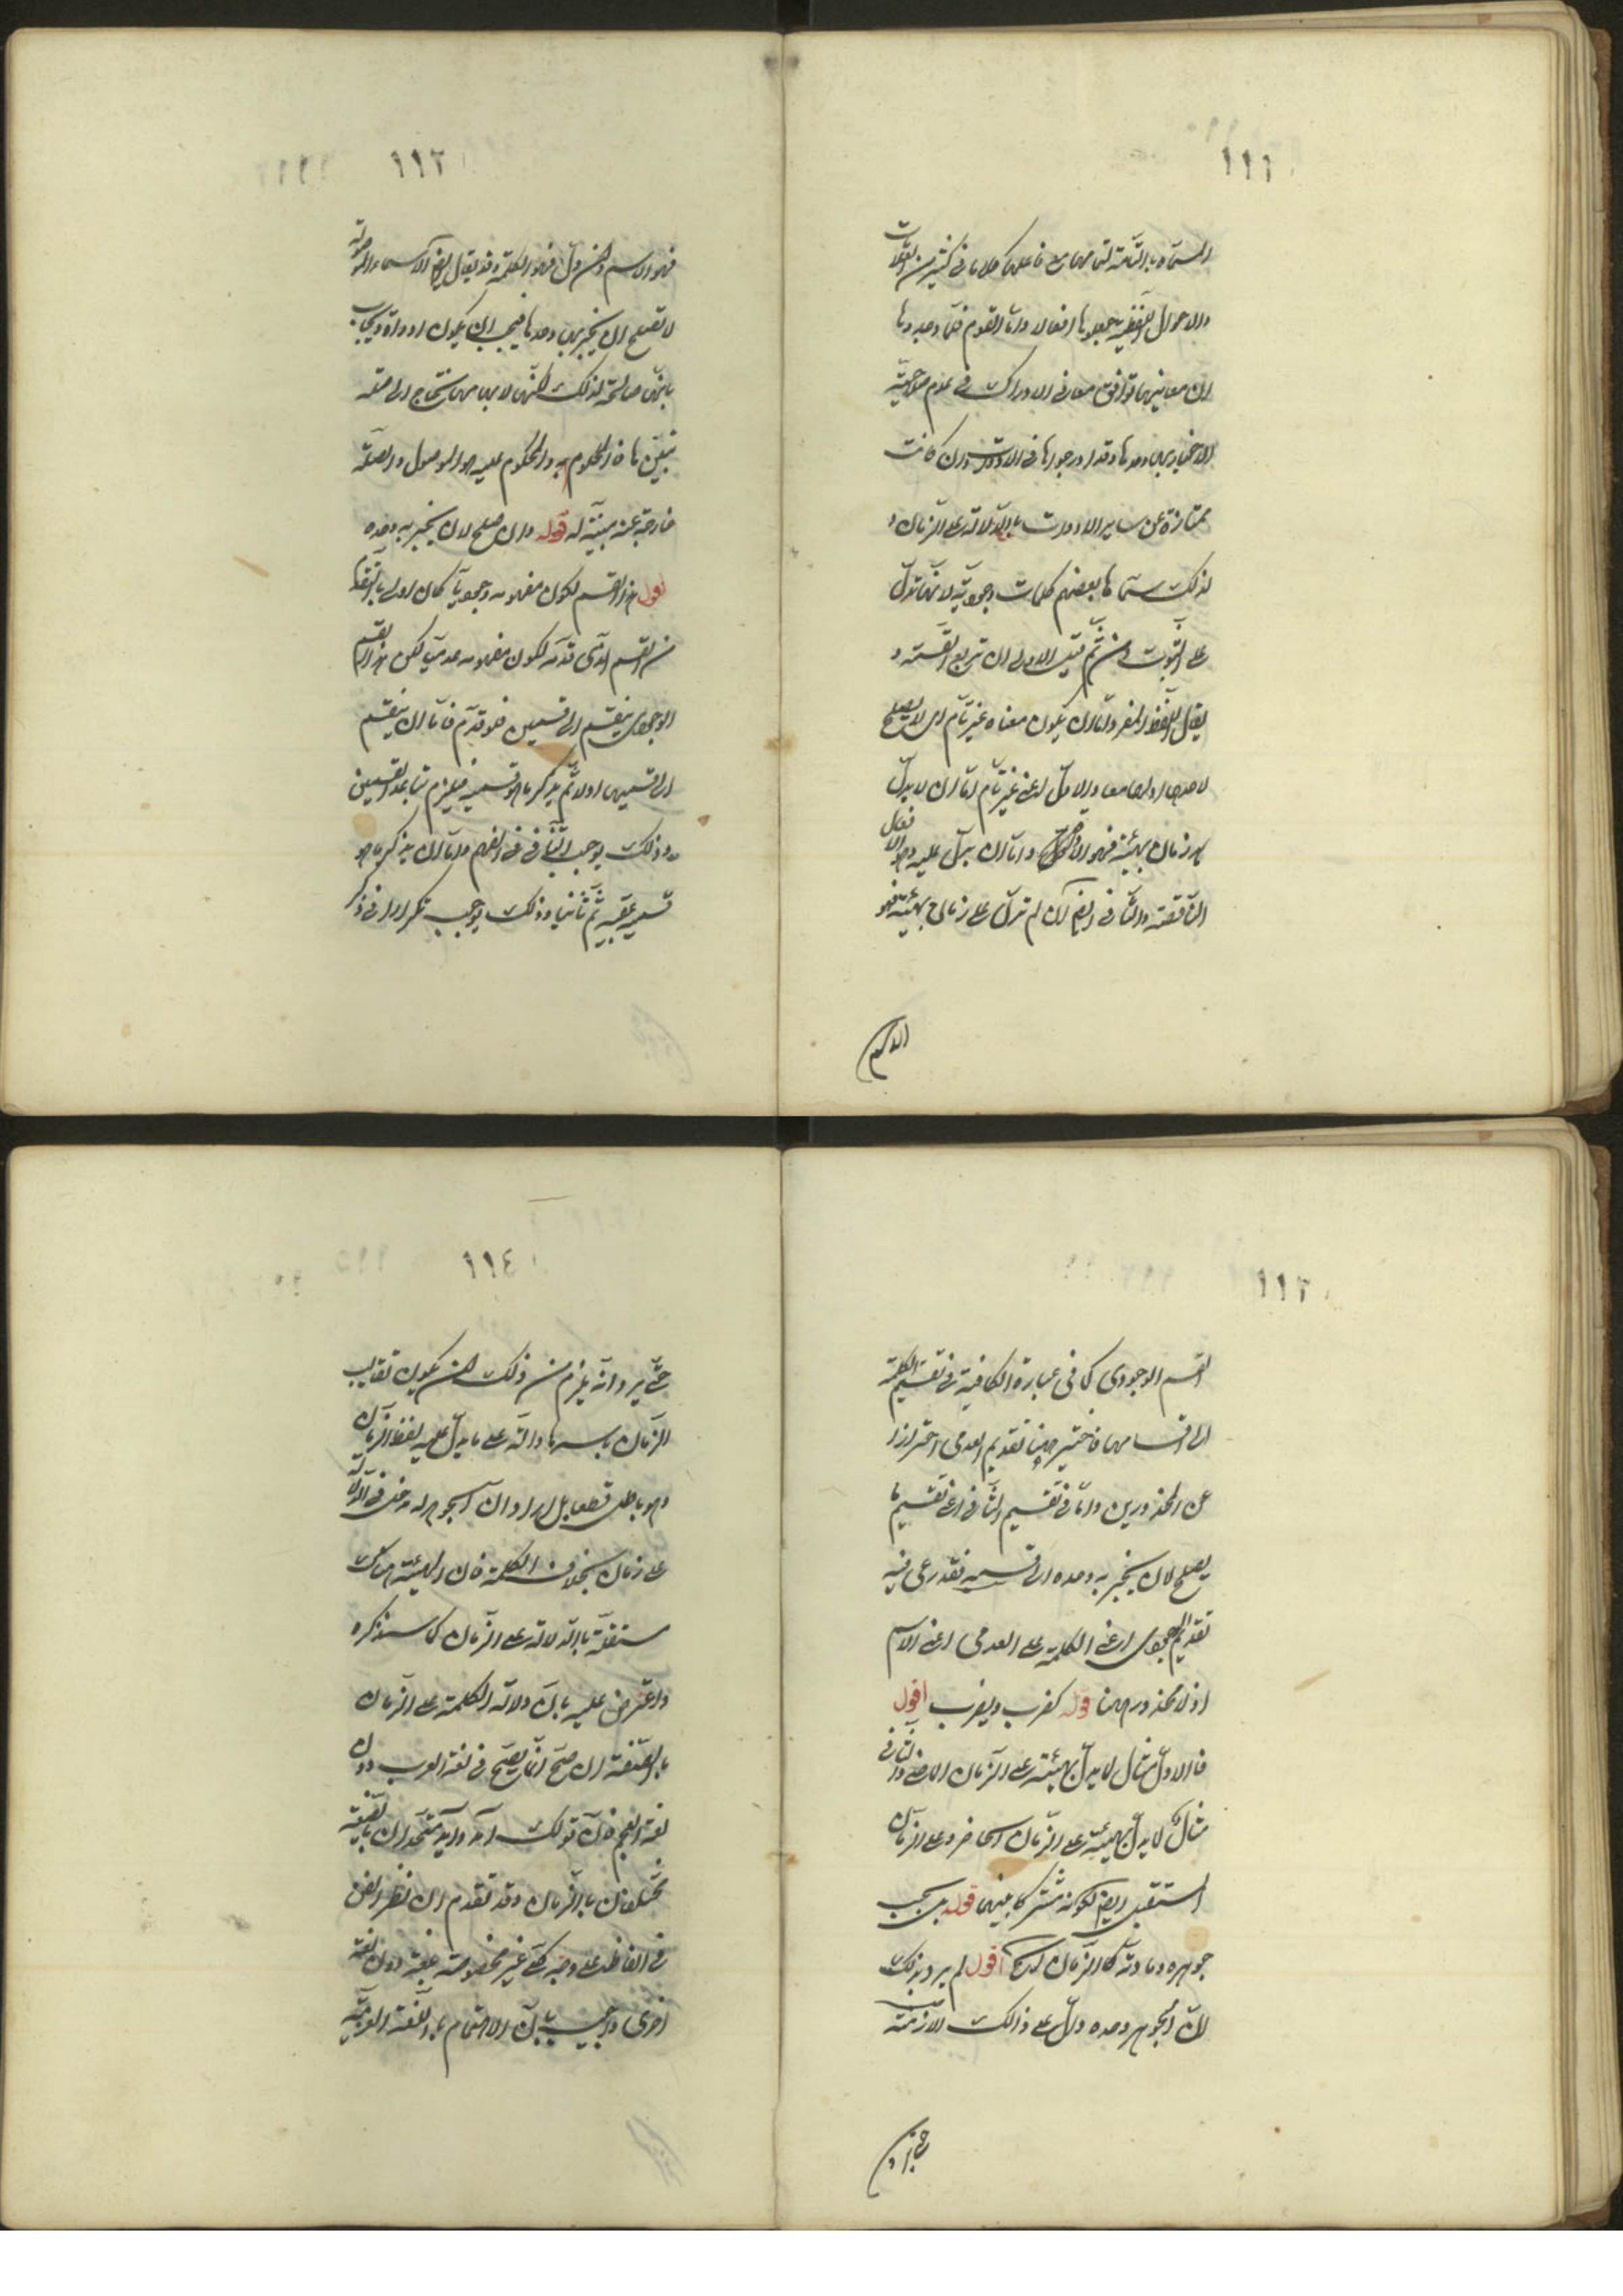 ١١١
المسمّاة بالتّامّة لتمامها مع فاعلها كلاما في كثير من العلامات
والاحوال اللّفظيّة جعلوها افعالا وامّا القوم فلمّا وجدوا
ان معانيها توافق معاني الادوات في عدم صلاحيّة
الاخبار بها وحدها وقد ادرجوها في الادوات وان كانت
ممتازة عن ساير الادوات بالدّلالة على الزّمان و
لذلك سمّاها بعضهم كلمات وجوديّة لانّها تدلّ
على الثّبوت ومن ثمّ قيل الاولى ان تربع القسمة و
يقال اللّفظ المفرد امّا ان يكون معناه غير تامّ اى لا يصلح
لاحدهما اولهما معا والاوّل اعنى غير تامّ امّا ان لا يدلّ
على زمان بهيئته فهو الاداة وامّا ان يدلّ عليه وهو الافعال
النّاقصة والثّانى ايضا ان لم تدلّ على زمان بهيئته فهو
الاسم
١١٢
فهو الاسم وان دلّ فهو الكلمة وقد يقال ايضا الاسماء الموصولة
لا تصلح ان يخبر بها وحدها فيجب ان يكون ادواة ويجاب
بانّها صالحة لذلك لكنّها لابهامها تحتاج الى صلة
تبيّنها فالمحكوم به والمحكوم عليه هو الموصول والصّلة
خارجة عنه مبيّنة له قوله وان صلح لان يخبر به وحده
اقول هذا القسم لكون مفهومه وجوديّا كان اولى بالتّقديم
من القسم الّذى قدّمه لكون مفهومه عدميّا لكن هذا القسم
الوجودى ينقسم الى قسمين فلو قدّم فامّا ان ينقسم
الى قسميها اولا ثمّ يذكر ما هو قسيمه فيلزم تباعد القسمين
وذلك يوجب التّنافى فى الفهم وامّا ان يذكر ما هو
قسيمه عقيبه ثمّ ثانيا وذلك يوجب تكرارا فى ذكر
١١٣
القسم الوجودى كما فى عبارة الكافية فى تقسيم الكلمة
الى اقسامها فاختير ههنا تقديم العدمى احترازا
عن المحذورين وامّا فى تقسيم الثّانى اعنى تقسيم ما
يصلح لان يخبر به وحده الى قسميه فقد رعى فيه
تقديم الوجودى اعنى الكلمة على العدمى اعنى الاسم
اذ لا محذور ههنا قوله كضرب ويضرب اقول
فالاوّل مثال لما يدلّ بهيئته على الزّمان الماضى والثّانى
مثال لما يدلّ بهيئته على الزّمان الحاضر وعلى الزّمان
المستقبل ايضا لكونه مشتركا بينهما قوله بل بحسب
جوهره ومادته كالزّمان الخ اقول لم يرد بذلك
انّ الجوهر وحده دلّ على ذالك الازمنة
حتّى يرد
١١٤
حتّى يرد انّه يلزم من ذلك ان يكون تقاليب
الزّمان باسرها دالّة على ما يدلّ عليه لفظ الزّمان
وهو باطل قطعا بل اراد انّ الجوهر له مدخل فى الدّلالة
على زمان بخلاف الكلمة فان الهيئة هناك
مستقلّة بالدّلالة على الزّمان كما سنذكره
واعترض عليه بانّ دلالة الكلمة على الزمان
بالصّيغة ان صحّ انّما يصحّ فى لغة العرب دون
لغة العجم فان قولك آمد وآيد متّحدان بالصّيغة
مختلفان بالزّمان وقد تقدم ان نظر الفن
فى الفاظ على وجه كلّى غير مخصوصة بلغة دون لغة
اخرى واجيب بانّ الاهتمام باللّغة العربيّة